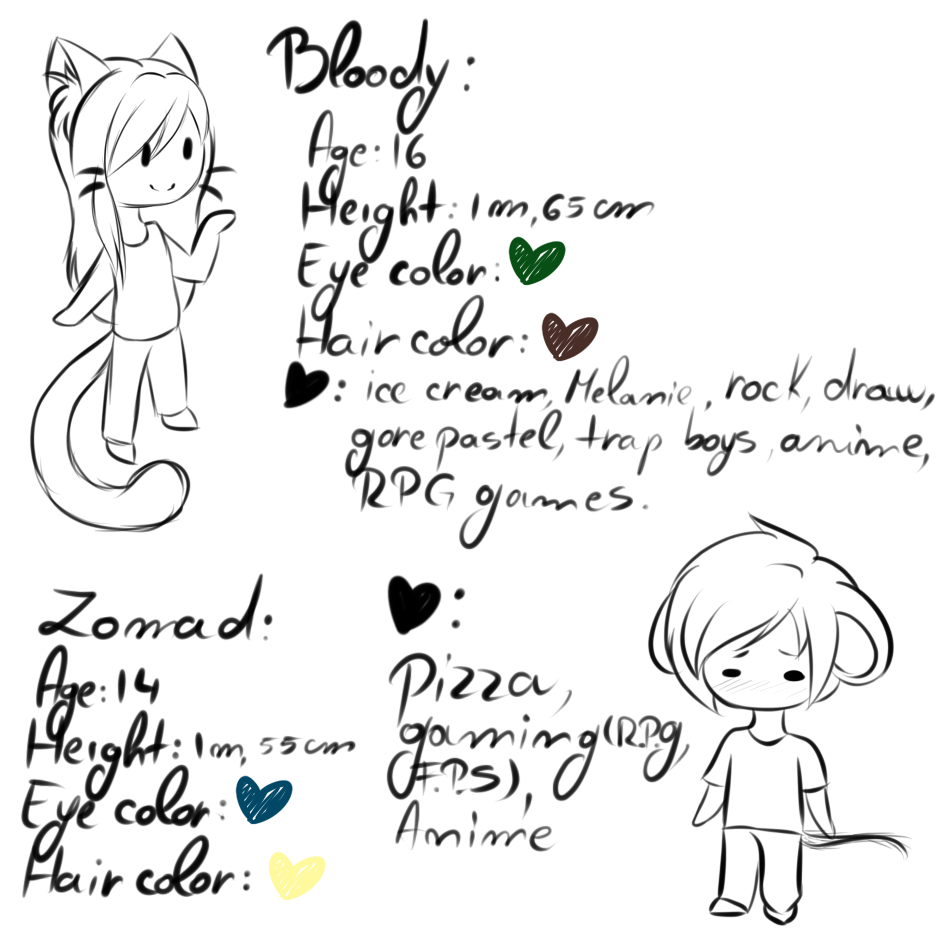 Bloody:
Age: 16
Height: 1m, 65cm
Eye color:
Hair color:
: ice cream, Melanie, rock, draw,
gore pastel, trap boys, anime,
RPG games.
Zomad:
Age: 14
Height: 1m, 55cm
Eye color:
Hair color:
:
Pizza,
gaming(R.P.g,
F.P.S),
Anime